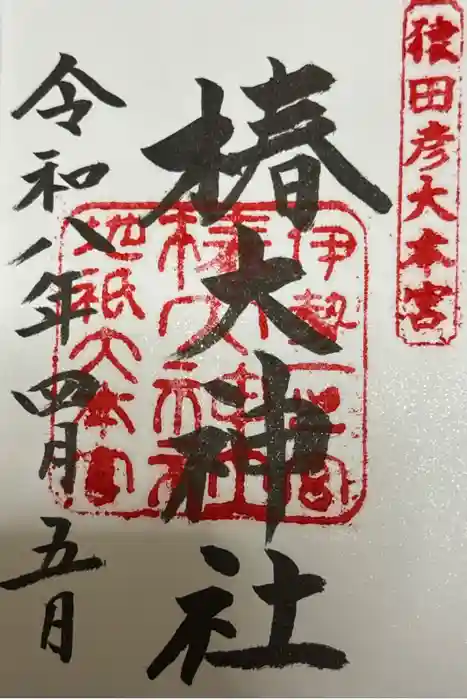 猿田彦大本宮
椿大神社
伊勢一之宮
椿大神社
地祇大本宮
令和八年四月五日